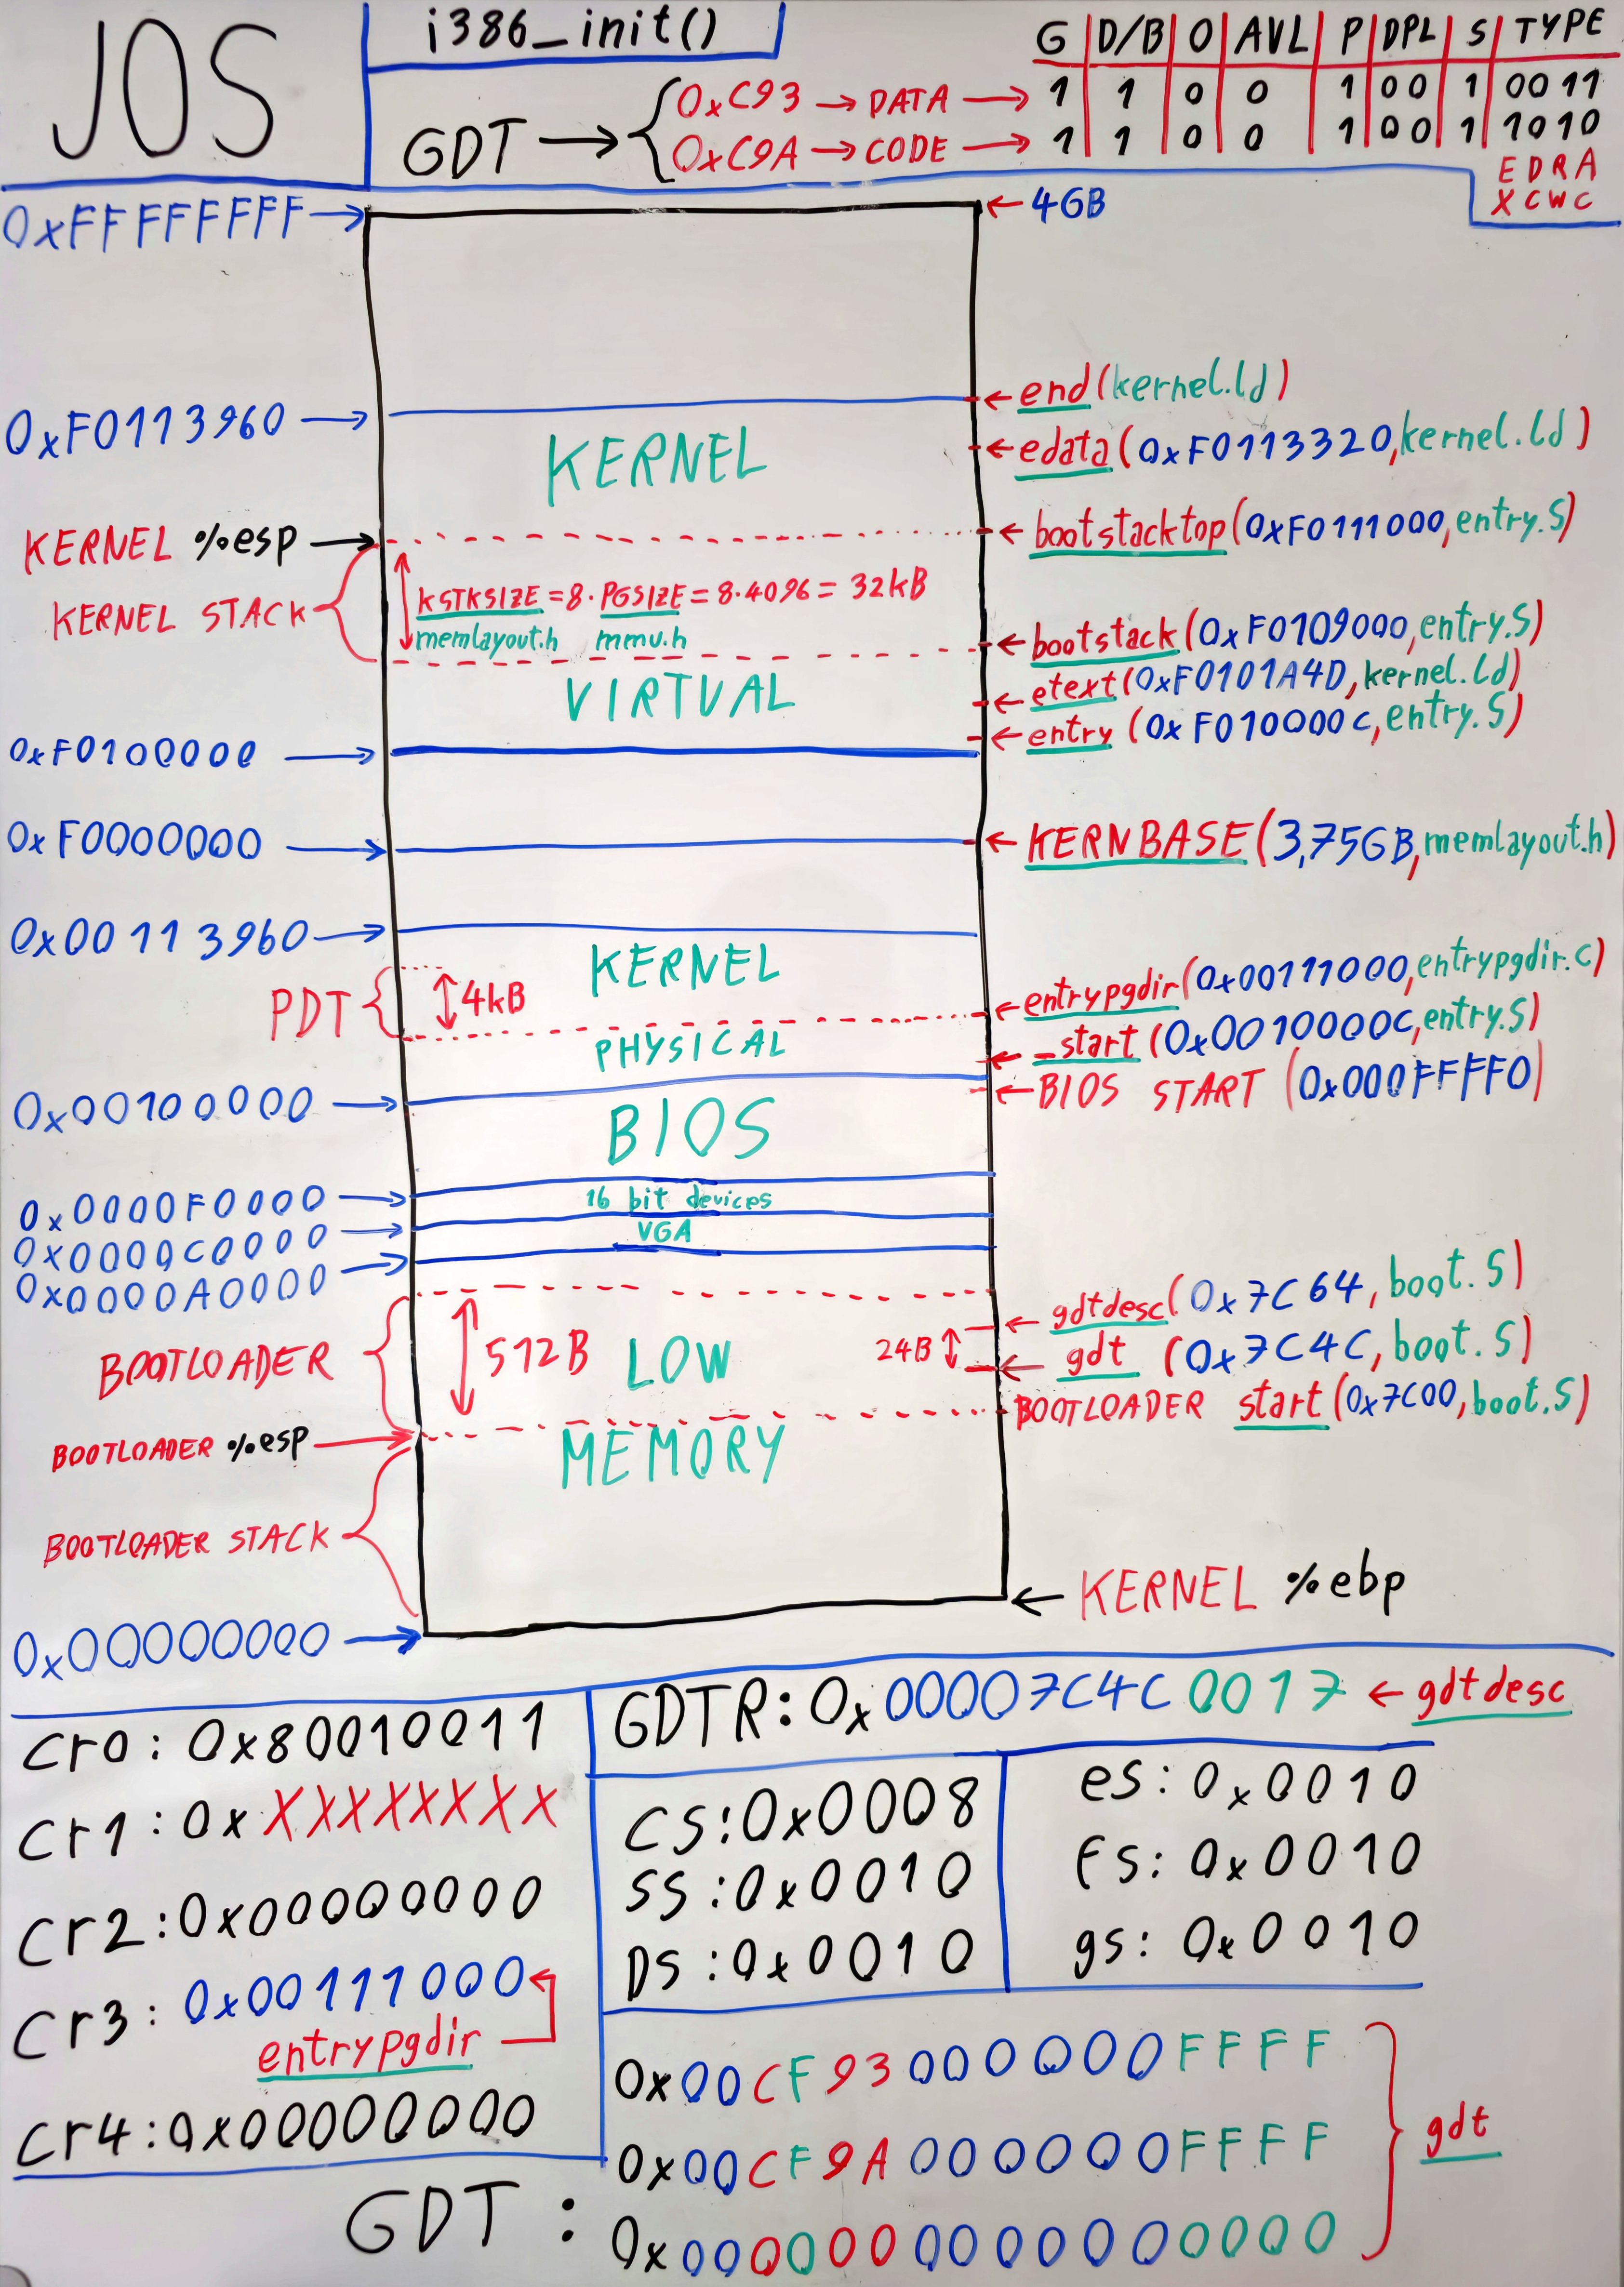 JOS
i386_init()
G D/B 0 AVL P DPL S TYPE
GDT → 0xC93 → DATA → 1 1 0 0 1 00 1 0011
0xC9A → CODE → 1 1 0 0 1 00 1 1010
E D R A
X C W C
0xFFFFFFFF → ← 4GB
← end (kernel.ld)
0xF0113960 →
KERNEL
← edata (0xF0113320, kernel.ld)
KERNEL %esp → ← bootstacktop (0xF0111000, entry.S)
KERNEL STACK
KSTKSIZE = 8 · PGSIZE = 8·4096 = 32kB
memlayout.h mmu.h
← bootstack (0xF0109000, entry.S)
VIRTUAL
← etext (0xF0101A4D, kernel.ld)
← entry (0xF010000C, entry.S)
0xF0100000 →
0xF0000000 → ← KERNBASE (3,75GB, memlayout.h)
0x00113960 →
KERNEL
PDT 4kB
← entrypgdir (0x00111000, entrypgdir.c)
PHYSICAL
← _start (0x0010000C, entry.S)
← BIOS START (0x000FFFF0)
0x00100000 →
BIOS
0x0000F0000 →
16 bit devices
0x0000C0000 →
VGA
0x0000A0000 →
← gdtdesc (0x7C64, boot.S)
BOOTLOADER 512B LOW 24B
← gdt (0x7C4C, boot.S)
BOOTLOADER start (0x7C00, boot.S)
BOOTLOADER %esp →
MEMORY
BOOTLOADER STACK
← KERNEL %ebp
0x00000000 →
GDTR: 0x00007C4C0017 ← gdtdesc
cr0: 0x80010011
cr1: 0xXXXXXXXX
cr2: 0x00000000
cr3: 0x00111000
entrypgdir
cr4: 0x00000000
CS: 0x0008
SS: 0x0010
DS: 0x0010
es: 0x0010
fs: 0x0010
gs: 0x0010
GDT :
0x00CF93000000FFFF
0x00CF9A000000FFFF
0x0000000000000000
gdt